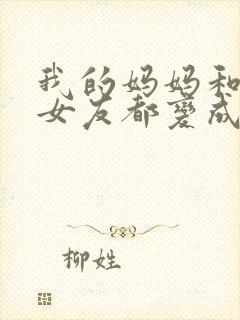 我的妈妈和
女友都变成
柳姓